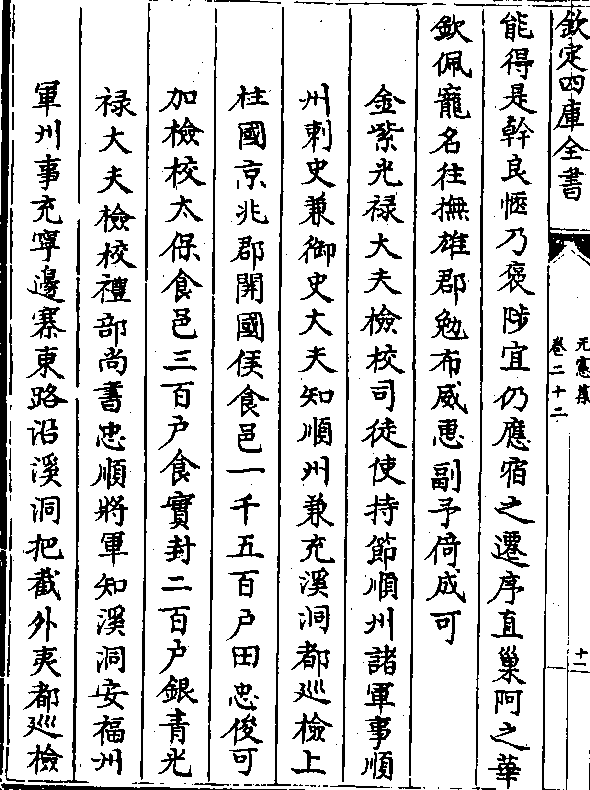 欽定四庫全書
元憲集
卷二十二
十二
能得是幹良愜乃褒陟宜仍應宿之遷序直巢阿之華
欽佩寵名往撫雄郡勉布威惠副予倚成可
金紫光禄大夫檢校司徒使持節順州諸軍事順
州刺史兼御史大夫知順州兼充溪洞都巡檢上
柱國京兆郡開國侯食邑一千五百戶田忠俊可
加檢校太保食邑三百戶食實封二百戶銀青光
禄大夫檢校禮部尚書忠順將軍知溪洞安福州
軍州事充寧邊寨東路沿溪洞把截外夷都巡檢